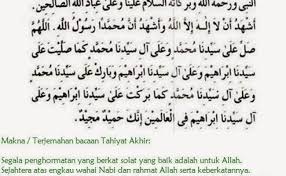 النبي ورحمة الله وبركاته السلام علينا وعلى عباد الله الصالحين.
أشهد أن لا إله إلا الله وأشهد أن محمدا رسول الله. اللهم
صل على سيدنا محمد وعلى آل سيدنا محمد كما صليت على
سيدنا إبراهيم وعلى آل سيدنا إبراهيم وبارك على سيدنا محمد
وعلى آل سيدنا محمد كما باركت على سيدنا إبراهيم وعلى
آل سيدنا إبراهيم في العالمين إنك حميد مجيد.
Makna / Terjemahan bacaan Tahiyat Akhir:
Segala penghormatan yang berkat solat yang baik adalah untuk Allah.
Sejahtera atas engkau wahai Nabi dan rahmat Allah serta keberkatannya.